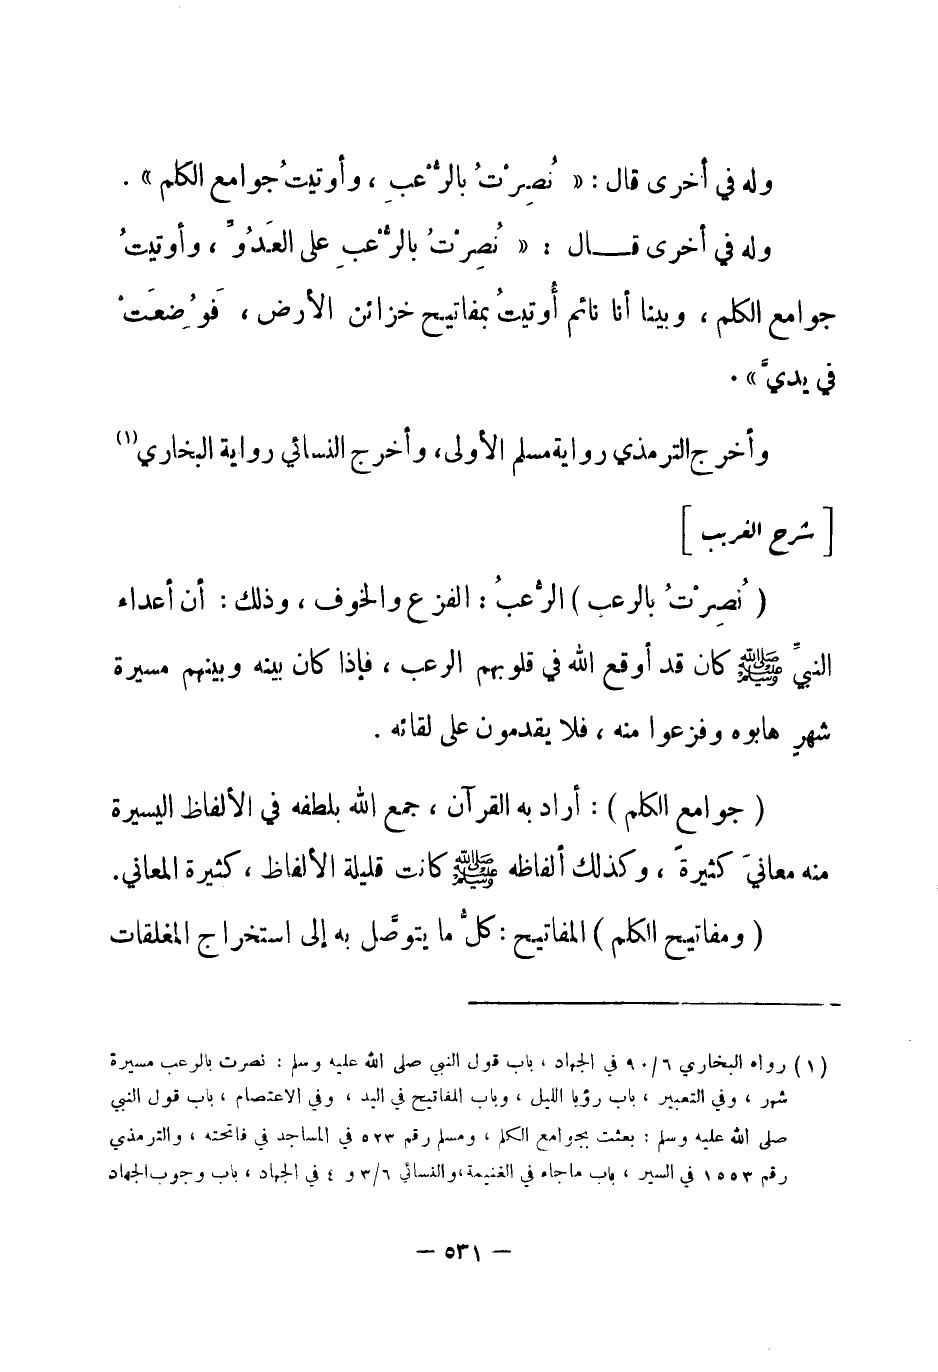 وله في أخرى قال : « نُصِرْتُ بالرُّعبِ ، وأوتيتُ جوامع الكلم » .
وله في أخرى قــال : « نُصِرْتُ بالرُّعبِ على العَدُوِّ ، وأوتيتُ
جوامع الكلم ، وبينا أنا نائم أُوتيتُ بمفاتيح خزائن الأرض ، فَوُضِعَتْ
في يديَّ » .
وأخرج الترمذي رواية مسلم الأولى، وأخرج النسائي رواية البخاري (١)
[ شرح الغريب ]
( نُصِرْتُ بالرعب ) الرُّعبُ : الفزع والخوف ، وذلك : أن أعداء
النبيِّ ﷺ كان قد أوقع الله في قلوبهم الرعب ، فإذا كان بينه وبينهم مسيرة
شهرٍ هابوه وفزعوا منه ، فلا يقدمون على لقائه .
( جوامع الكلم ) : أراد به القرآن ، جمع الله بلطفه في الألفاظ اليسيرة
منه معانيَ كثيرةً ، وكذلك ألفاظه ﷺ كانت قليلة الألفاظ ، كثيرة المعاني.
( ومفاتيح الكلم ) المفاتيح : كلُّ ما يتوصَّل به إلى استخراج المغلقات
(١) رواه البخاري ٩٠/٦ في الجهاد ، باب قول النبي صلى الله عليه وسلم : نصرت بالرعب مسيرة
شهر ، وفي التعبير ، باب رؤيا الليل ، وباب المفاتيح في اليد ، وفي الاعتصام ، باب قول النبي
صلى الله عليه وسلم : بعثت بجوامع الكلم ، ومسلم رقم ٥٢٣ في المساجد في فاتحته ، والترمذي
رقم ١٥٥٣ في السير ، باب ماجاء في الغنيمة، والنسائي ٣/٦ و ٤ في الجهاد ، باب وجوب الجهاد
— ٥٣١ —